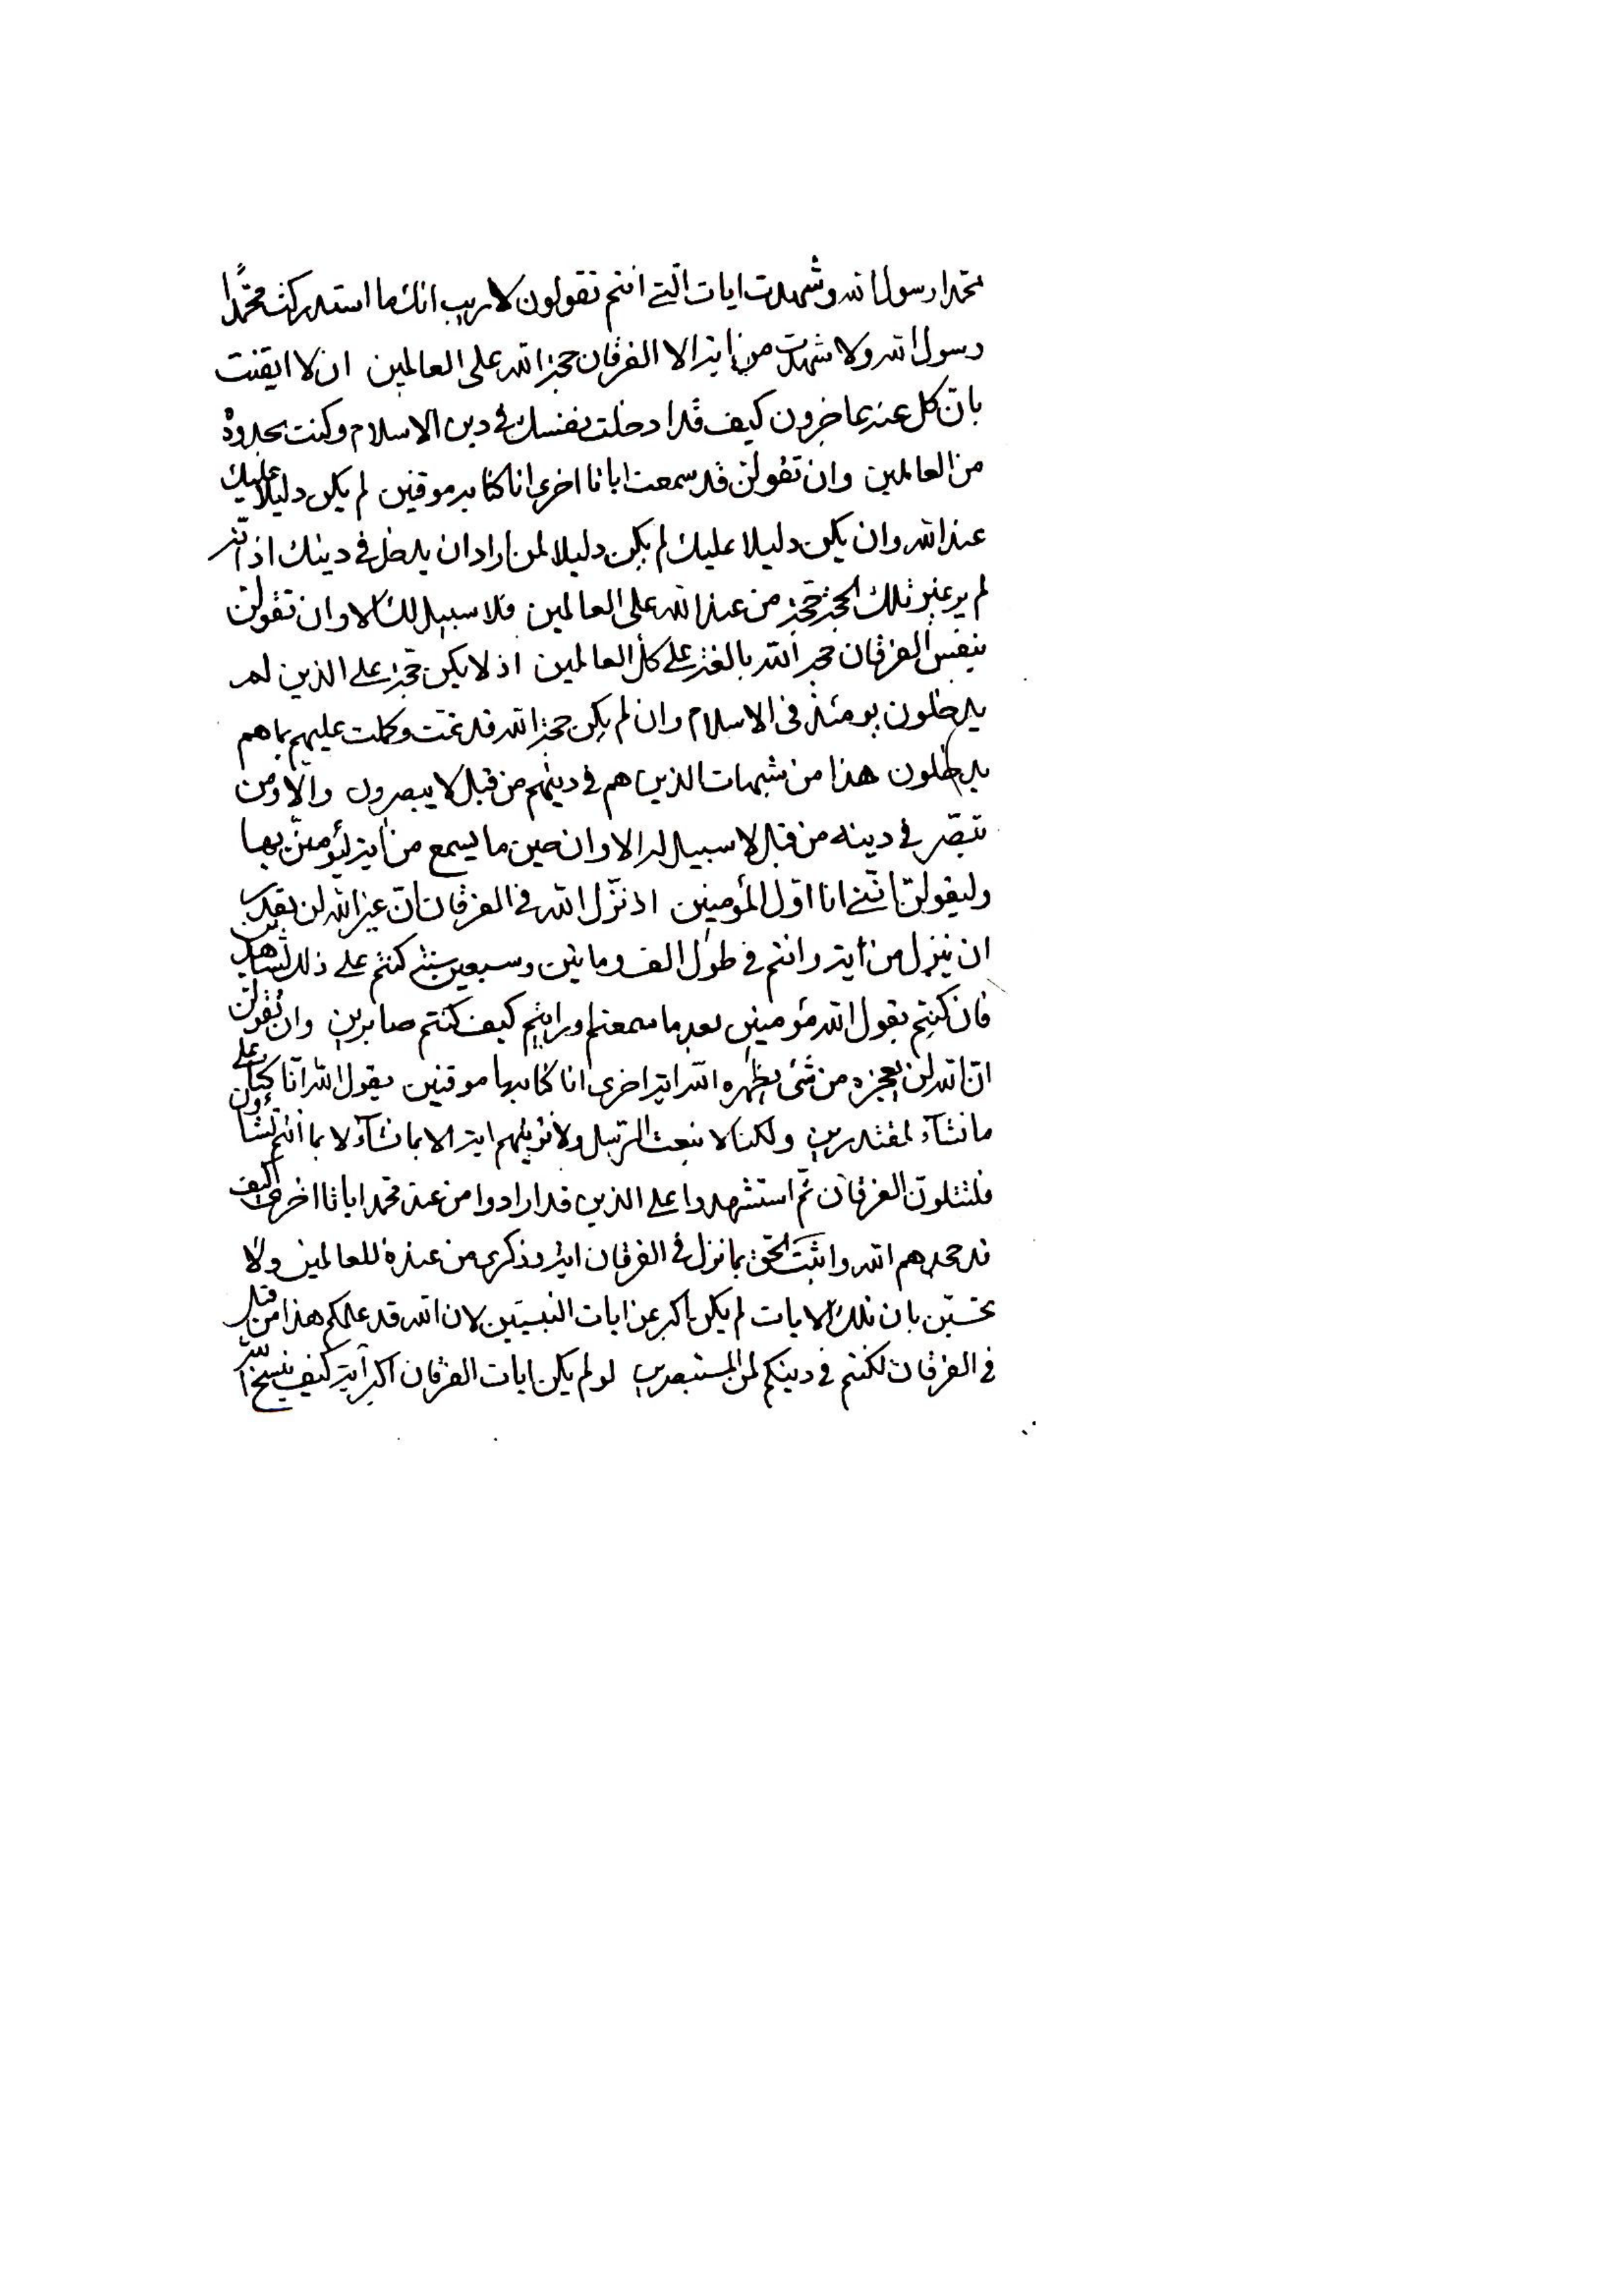 محمدا رسول الله وشهدت ايات الّتي انتم تقولون لا ريب انك ما استدركت محمّدًا
رسول الله ولا شهدت من اية الا الفرقان حجة الله على العالمين ان لا ايقنت
بانّ كل عنه عاجزون كيف قد ادخلت نفسك في دين الاسلام وكنت بحدوده
من العالمين وان تقولنّ قد سمعت اياتا اخرى انا كنا به موقنين لم يكن دليلا عليك
عند الله وان يكن دليلا عليك لم يكن دليلا لمن اراد ان يدخل في دينك اذ انّه
لم ير عنبر تلك الحجة حجة من عند الله على العالمين فلا سبيل لك الا وان تقولنّ
بنفس الفرقان حجة الله بالغة على كل العالمين اذ لا يكن حجة على الذين لم
يدخلون يومئذ في الاسلام وان لم يكن حجة الله قد تمّت وكملت عليهم بما هم
يدخلون هذا من شبهات الذين هم في دينهم من قبل لا يبصرون والا ومن
تبصّر في دينه من قبل لا سبيل له الا وان حين ما يسمع من اية ليؤمننّ بها
وليقولنّ انّني انا اوّل المؤمنين اذ نزّل الله في الفرقان انّ غير الله لن يقدر
ان ينزل من اية وانتم في طول الف ومايتين وسبعين سنة كنتم على ذلك لشاهدين
فان كنتم بقول الله مؤمنين بعد ما سمعتم او رايتم كيف كنتم صابرين وان تقولنّ
انّ الله لن يعجزه من شئ يظهره الله اية اخرى انا كنا بها موقنين يقول الله انّا كنا على
ما نشآء لمقتدرين ولكنا لا نبعث الرسل ولا نؤتيهم اية الا بما نشآء لا بما انتم تشاؤن
فلتتلونّ الفرقان ثمّ استشهدوا على الذين قد ارادوا من عند محمد اياتا اخرى كيف
قد جحدهم الله واثبت الحق بما نزل في الفرقان اية وذكرى من عنده للعالمين ولا
تحسبّن بان تلك الايات لم يكن اكبر عن ايات النبييّن لان الله قد علمكم هذا من قبل
في الفرقان لكنتم في دينكم لمن المستبصرين لو لم يكن ايات الفرقان اكبر آية كيف ينسخ الله